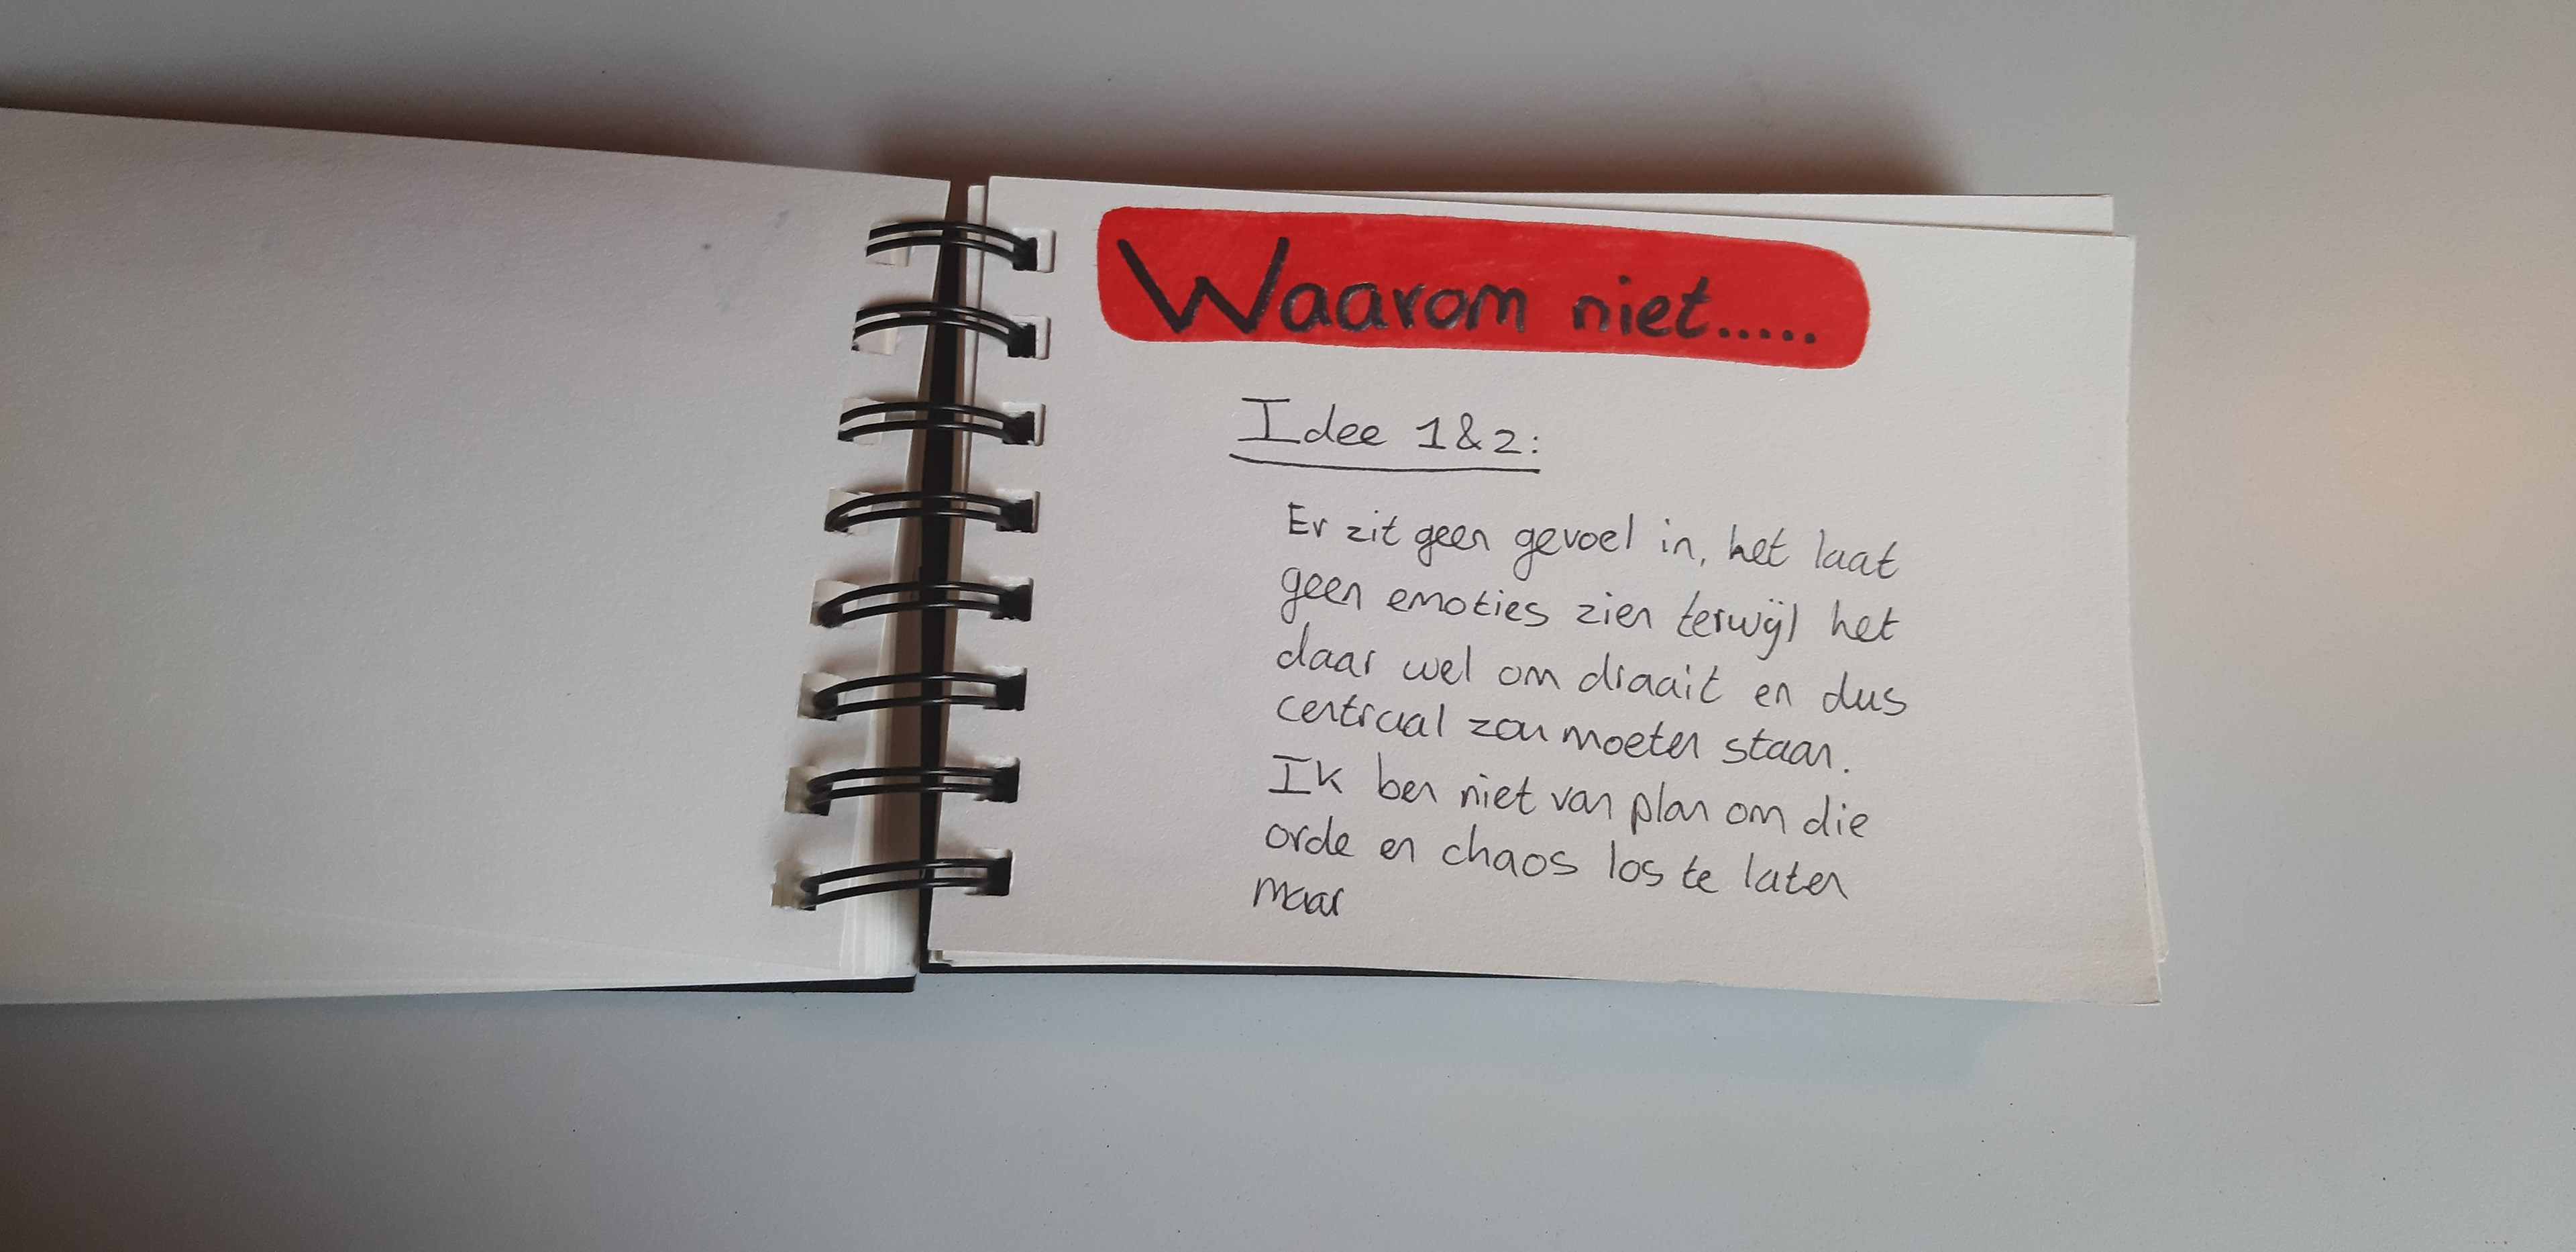 Waarom niet.....
Idee 1&2:
Er zit geen gevoel in, het laat
geen emoties zien terwijl het
daar wel om draait en dus
centraal zou moeten staan.
Ik ben niet van plan om die
orde en chaos los te laten
maar